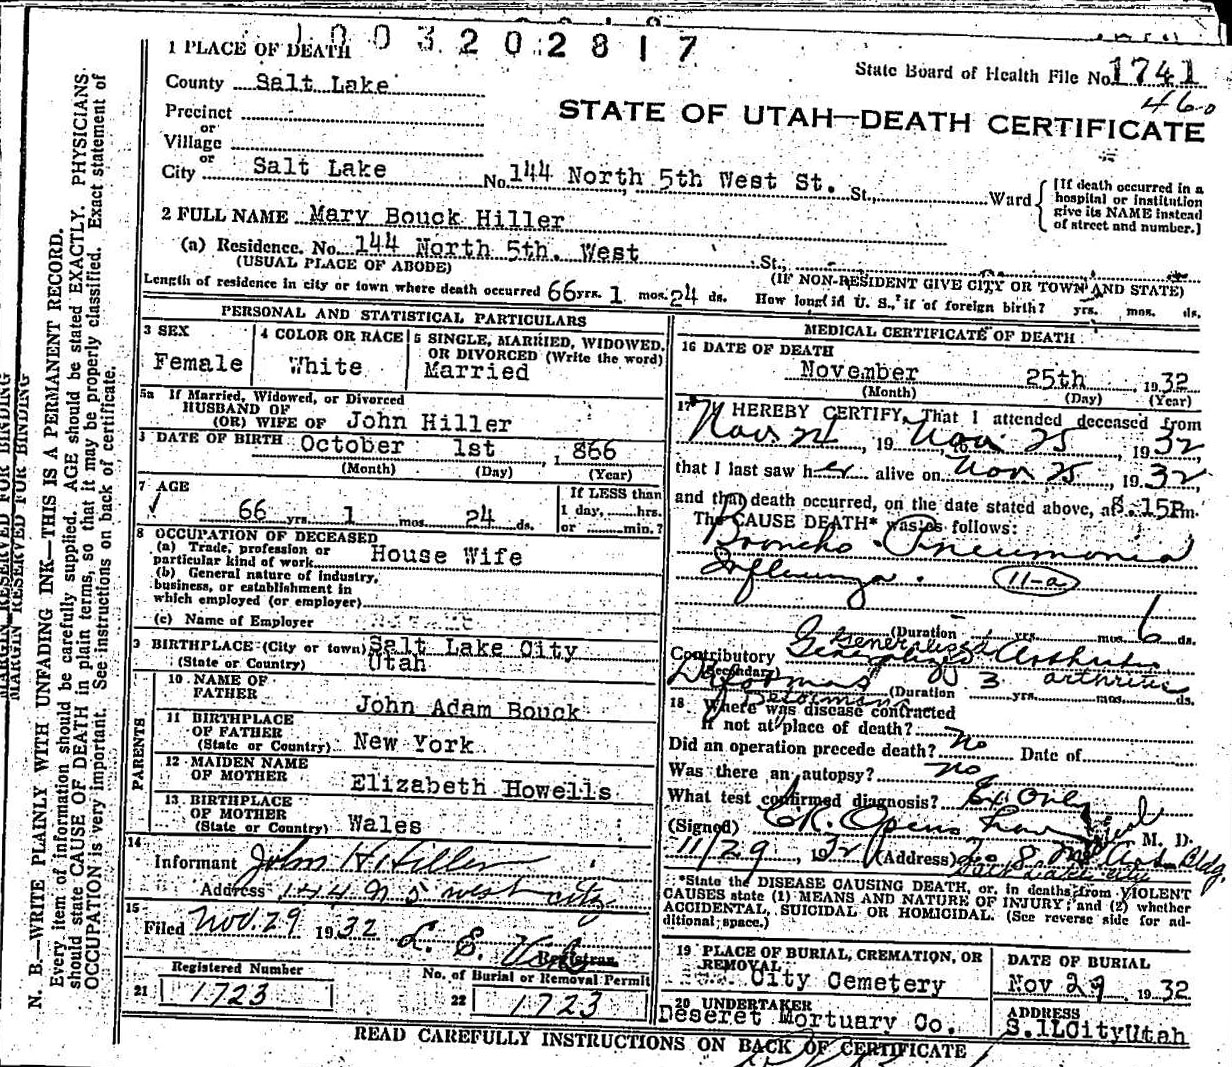 1003202817
1 PLACE OF DEATH
State Board of Health File No. 1741
460
County Salt Lake
STATE OF UTAH—DEATH CERTIFICATE
Precinct
or
Village
or
City Salt Lake No. 144 North 5th West St. St., Ward
[If death occurred in a hospital or institution give its NAME instead of street and number.]
2 FULL NAME Mary Bouck Hiller
(a) Residence. No. 144 North 5th. West St.,
(USUAL PLACE OF ABODE) (IF NON-RESIDENT GIVE CITY OR TOWN AND STATE)
Length of residence in city or town where death occurred 66 yrs. 1 mos. 24 ds. How long in U. S., if of foreign birth? yrs. mos. ds.
PERSONAL AND STATISTICAL PARTICULARS
3 SEX
Female
4 COLOR OR RACE
White
5 SINGLE, MARRIED, WIDOWED, OR DIVORCED (Write the word)
Married
5a If Married, Widowed, or Divorced
HUSBAND OF
(OR) WIFE OF John Hiller
DATE OF BIRTH October 1st 1866
(Month) (Day) (Year)
7 AGE
66 yrs. 1 mos. 24 ds.
If LESS than
1 day, hrs.
or min.?
8 OCCUPATION OF DECEASED
(a) Trade, profession or
particular kind of work House Wife
(b) General nature of industry,
business, or establishment in
which employed (or employer)
(c) Name of Employer
9 BIRTHPLACE (City or town) Salt Lake City
(State or Country) Utah
PARENTS
10 NAME OF
FATHER John Adam Bouck
11 BIRTHPLACE
OF FATHER
(State or Country) New York
12 MAIDEN NAME
OF MOTHER Elizabeth Howells
13 BIRTHPLACE
OF MOTHER
(State or Country) Wales
14
Informant John H Hiller
Address 144 N 5 West City
15
Filed Nov. 29 1932 L. E.
Registrar
Registered Number
21 1723
No. of Burial or Removal Permit
22 1723
MEDICAL CERTIFICATE OF DEATH
16 DATE OF DEATH
November 25th 1932
(Month) (Day) (Year)
17 I HEREBY CERTIFY, That I attended deceased from
Nov 24, 19 to Nov 25, 1932
that I last saw her alive on Nov 25, 1932
and that death occurred, on the date stated above, at 8:15 P m.
The CAUSE DEATH* was as follows:
Broncho-Pneumonia
Influenza. 11-a
(Duration yrs. mos. 6 ds.
Contributory Generalized Arthritis
Generalized arthritis
(Secondary) Deformans (Duration 3 yrs. mos. ds.
Deformans
18 Where was disease contracted
if not at place of death? no
Did an operation precede death? no Date of
Was there an autopsy? no
What test confirmed diagnosis? Ex Only
(Signed) M. D.
11/29, 1932 (Address) Bldg.
Salt Lake City
*State the DISEASE CAUSING DEATH, or, in deaths from VIOLENT
CAUSES state (1) MEANS AND NATURE OF INJURY; and (2) whether
ACCIDENTAL, SUICIDAL OR HOMICIDAL. (See reverse side for ad-
ditional space.)
19 PLACE OF BURIAL, CREMATION, OR
REMOVAL City Cemetery
DATE OF BURIAL
Nov 29 1932
20 UNDERTAKER
Deseret Mortuary Co.
ADDRESS
S.1LCityUtah
READ CAREFULLY INSTRUCTIONS ON BACK OF CERTIFICATE
MARGIN RESERVED FOR BINDING
MARGIN RESERVED FOR BINDING
N. B.—WRITE PLAINLY WITH UNFADING INK—THIS IS A PERMANENT RECORD.
Every item of information should be carefully supplied. AGE should be stated EXACTLY. PHYSICIANS
should state CAUSE OF DEATH in plain terms, so that it may be properly classified. Exact statement of
OCCUPATION is very important. See instructions on back of certificate.